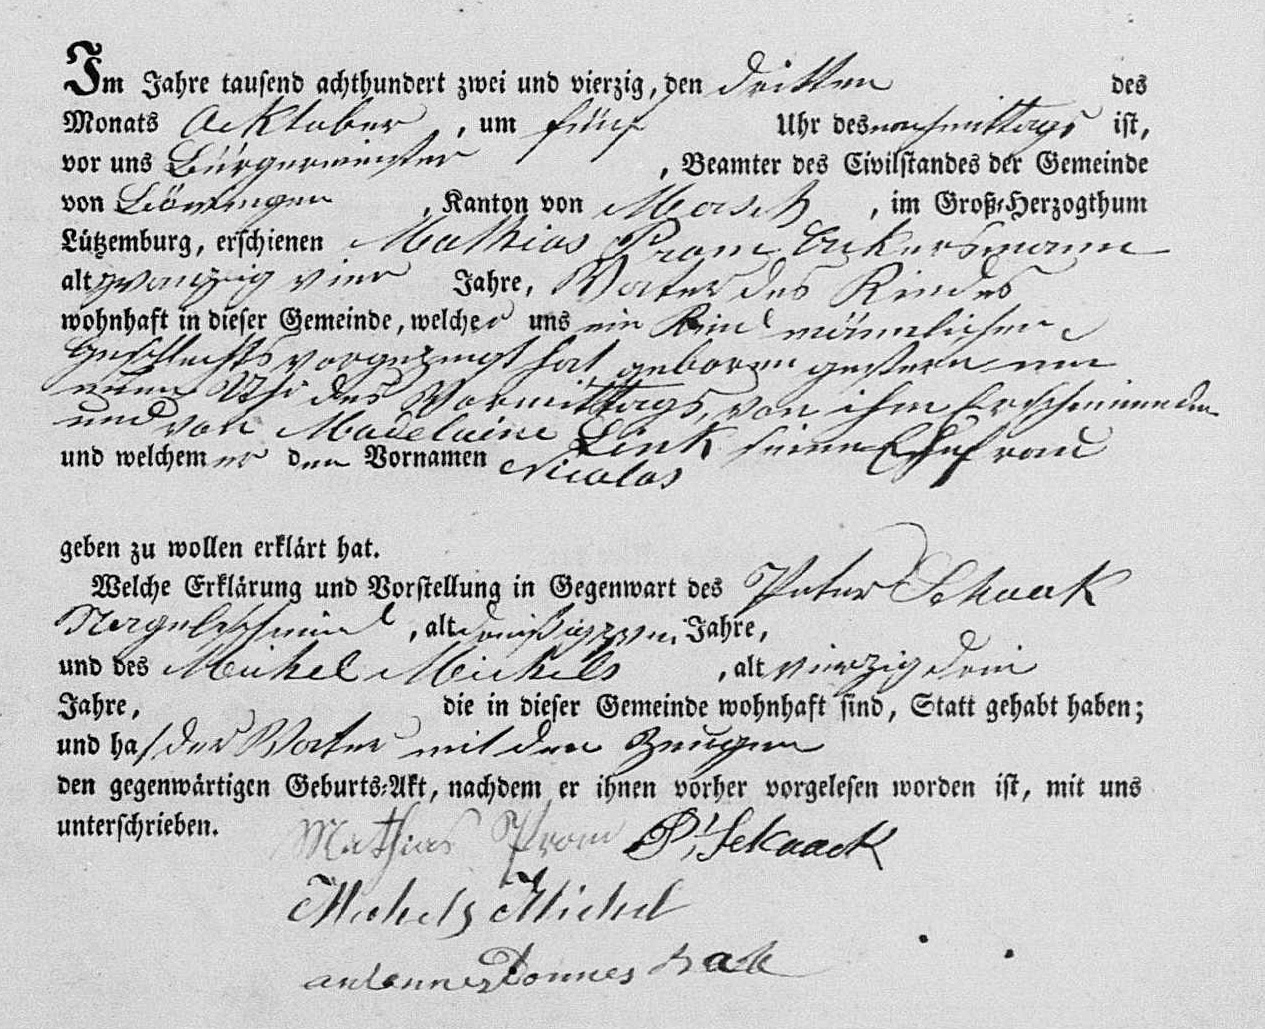 Im Jahre tausend achthundert zwei und vierzig, den dritten des
Monats Ocktober, um fünf Uhr des nachmittags ist,
vor uns Bürgermeister, Beamter des Civilstandes der Gemeinde
von , Kanton von Mersch, im Groß-Herzogthum
Lützemburg, erschienen Mathias Prom Ackersmann
alt zwanzig vier Jahre, Vater des Kindes
wohnhaft in dieser Gemeinde, welcher uns ein Kind männlichen
Geschlechts vorgezeugt hat geboren gestern um
neun Uhr des Vormittags, von ihm Erscheinenden
und von Madelaine Link seiner Ehefrau
und welchem er den Vornamen Nicolas
geben zu wollen erklärt hat.
Welche Erklärung und Vorstellung in Gegenwart des Peter Schaack
Nagelschmied, alt dreißig zwei Jahre,
und des Michel Michels, alt vierzig drei
Jahre, die in dieser Gemeinde wohnhaft sind, Statt gehabt haben;
und hat der Vater mit den Zeugen
den gegenwärtigen Geburts-Akt, nachdem er ihnen vorher vorgelesen worden ist, mit uns
unterschrieben. Mathias Prom P. Schaack
Michels Michel